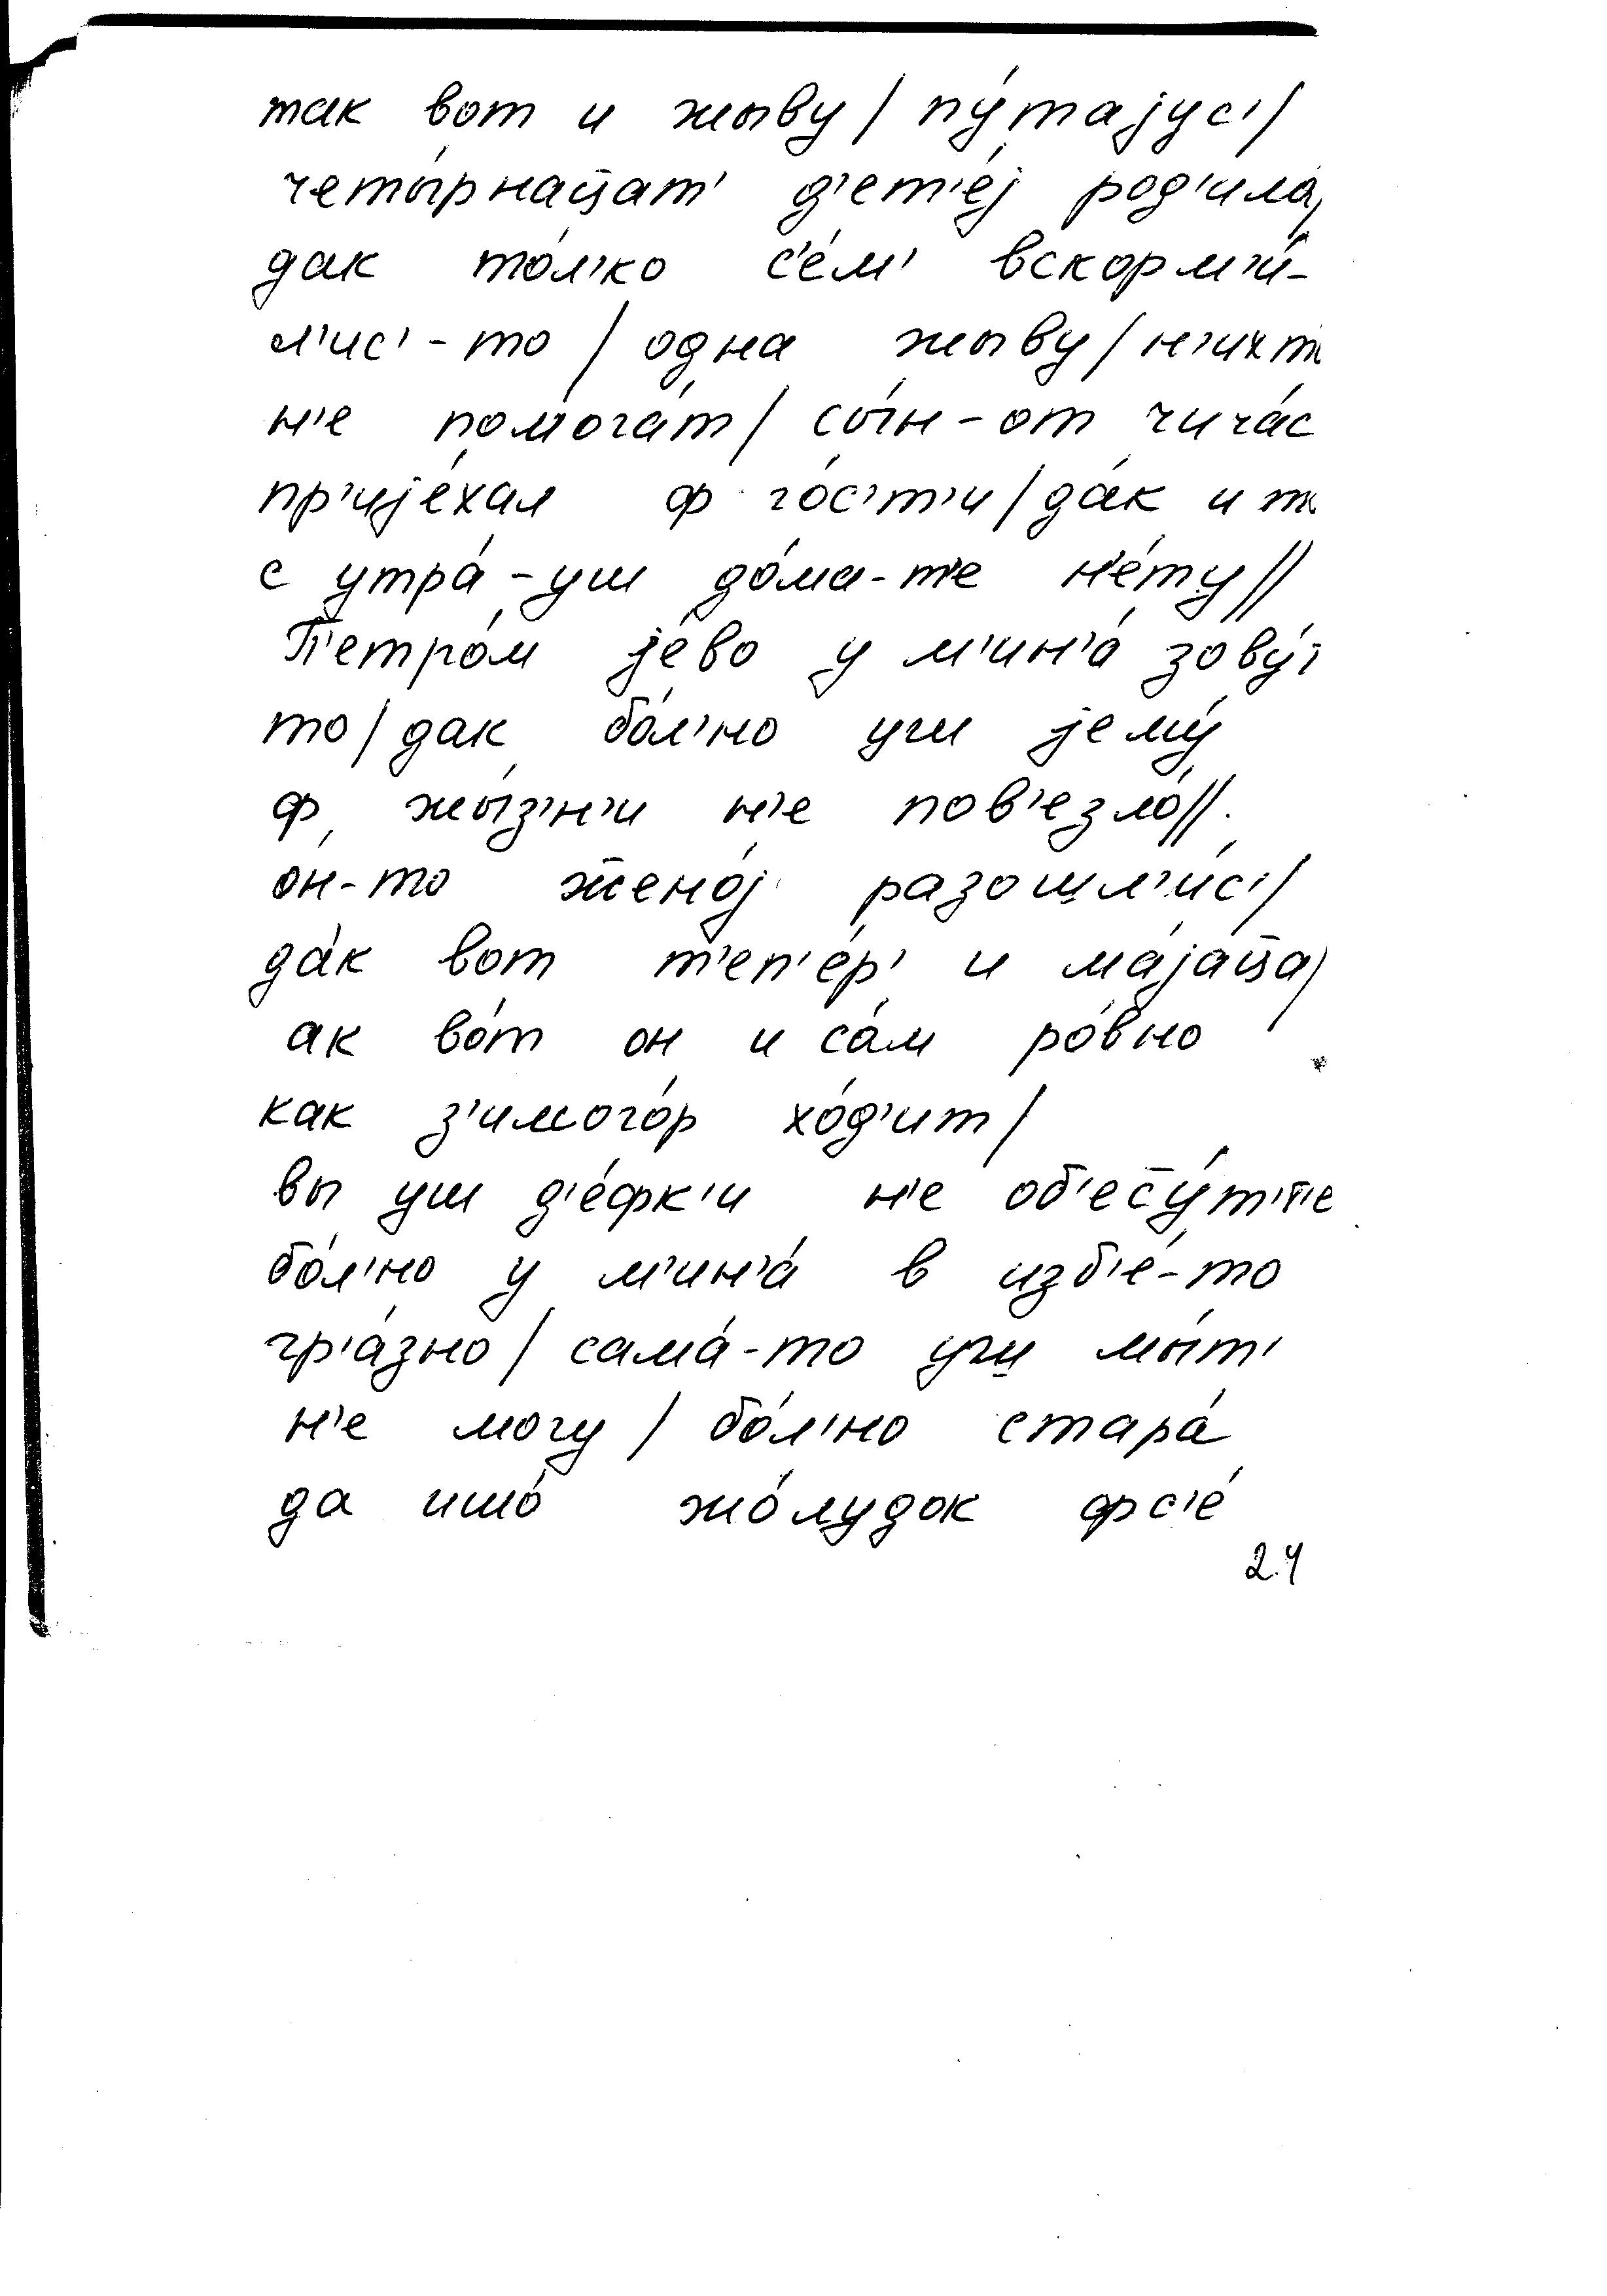 так вот и жыву / пу́тајус' /
четы́рнац̄ат' д'ет'е́ј род'ила́/
дак то́л'ко с'е́м' вскорм'и́-
л'ис'-то / одна жыву / н'ихт
н'е помога́т / сы́н-от чича́с
пр'ије́хал ф го́с'т'и / да́к и т
с утра́-уш до́ма-т'е н'е́ту //
П'етро́м је́во у м'ин'а́ зову́т
то / дак бо́л'но уш јему́
ф жы́з'н'и н'е пов'езло́ //.
о́н-то жено́ј разошл'и́с' /
да́к вот т'еп'е́р' и ма́јац̄а /
ак во́т он и са́м ро́вно
как з'имого́р хо́д'ит /
вы уш д'е́фк'и н'е об'ес̄у́т'т'е
бо́л'но у м'ин'а́ в изб'е́-то
гр'а́зно / сама́-то уш мы́т'
н'е могу / бо́л'но стара́
да ишо́ жо́лудок фс'е́
24